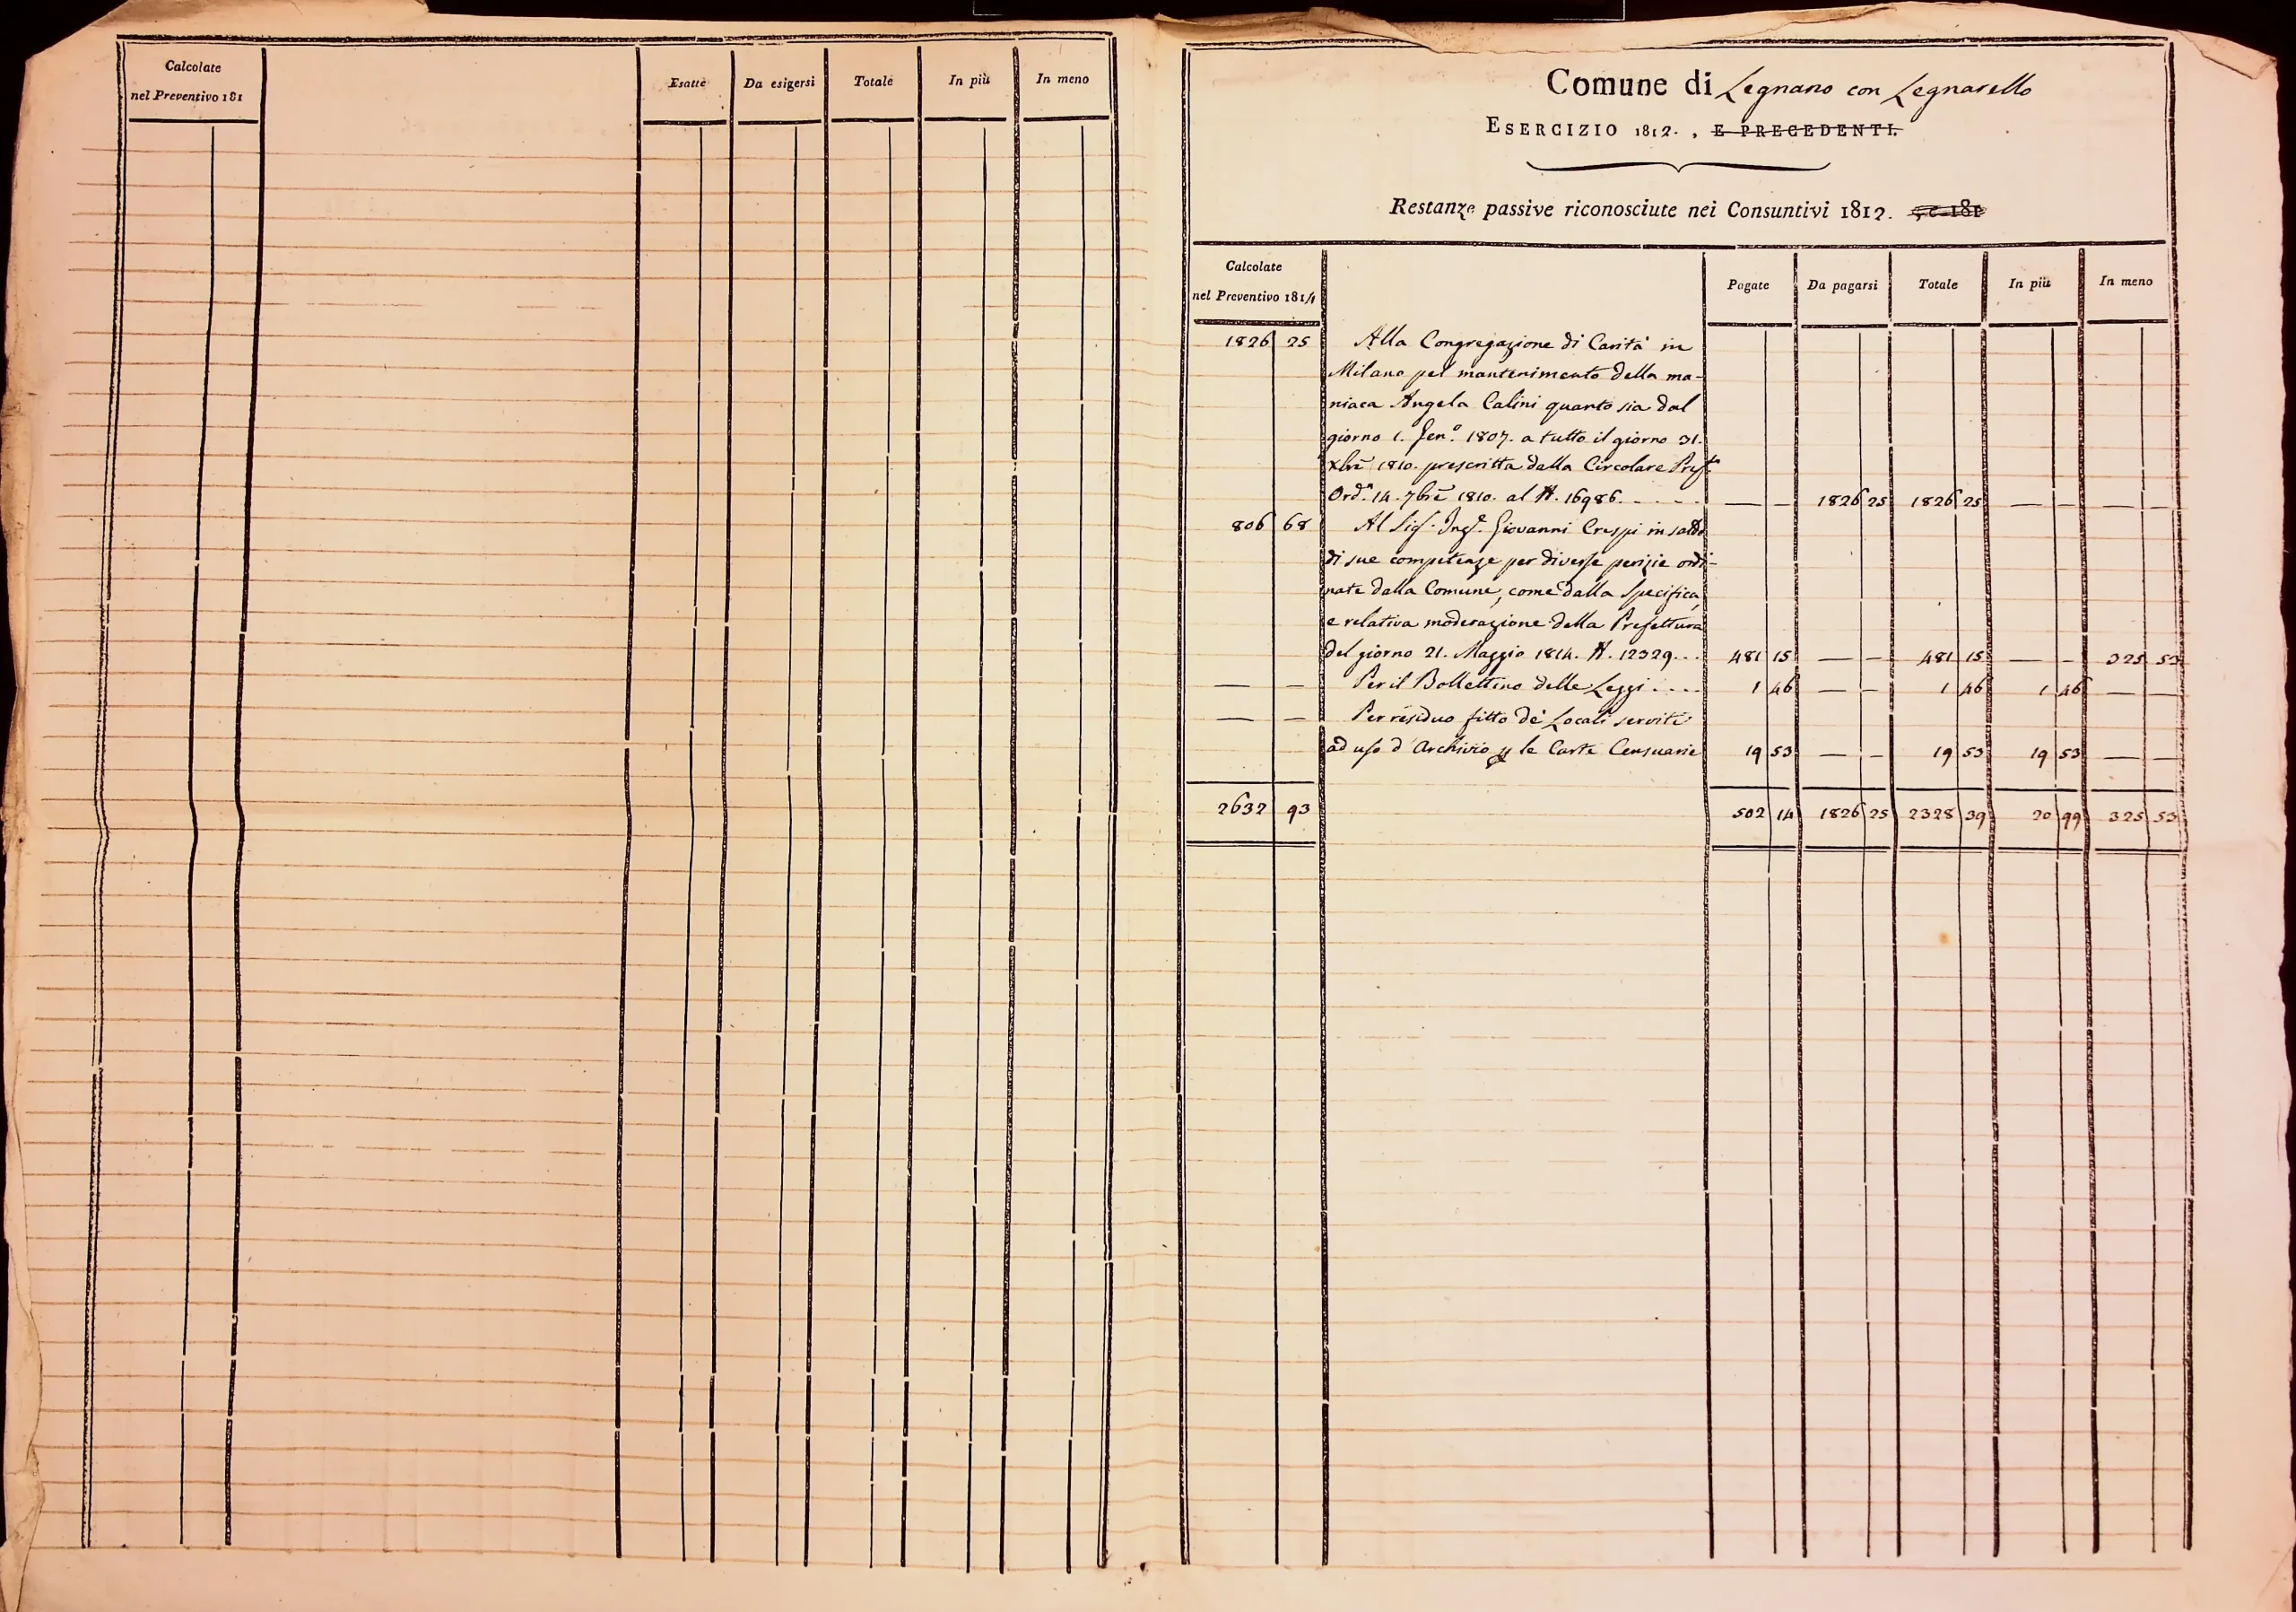 Calcolate
nel Preventivo 181
Esatte Da esigersi Totale In più In meno
Comune di Legnano con Legnarello
ESERCIZIO 1812. , E PRECEDENTI.
Restanze passive riconosciute nei Consuntivi 1812. e 181
Calcolate
nel Preventivo 1814
Pagate Da pagarsi Totale In più In meno
1826 25 Alla Congregazione di Carità in
Milano pel mantenimento della ma-
niaca Angela Calini quanto sia dal
giorno 1. Gen.º 1807. a tutto il giorno 31.
Xbre 1810. prescritta dalla Circolare Pref.
Ord.ª 14. 7bre 1810. al N. 16986. — — 1826 25 1826 25 — — — —
806 68 Al Sig. Ing. Giovanni Crespi in saldo
di sue competenze per diverse perizie ordi-
nate dalla Comune, come dalla Specifica,
e relativa moderazione della Prefettura
del giorno 21. Maggio 1814. N. 12329... 481 15 — — 481 15 — — 325 53
— — Per il Bollettino delle Leggi.... 1 46 — — 1 46 1 46 — —
— — Per residuo fitto de' Locali serviti
ad uso d'Archivio le Carte Censuarie 19 53 — — 19 53 19 53 — —
2632 93 502 14 1826 25 2328 39 20 99 325 53